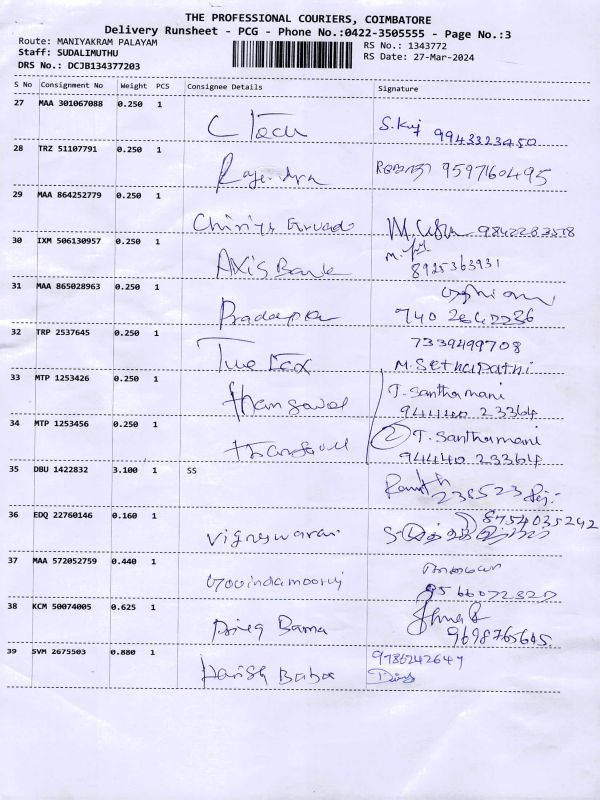 THE PROFESSIONAL COURIERS, COIMBATORE
Delivery Runsheet - PCG - Phone No.:0422-3505555 - Page No.:3
Route: MANIYAKRAM PALAYAM
RS No.: 1343772
Staff: SUDALIMUTHU
RS Date: 27-Mar-2024
DRS No.: DCJB134377203
S No Consignment No Weight PCS Consignee Details Signature
27 MAA 301067088 0.250 1
C Tech 9943323450
28 TRZ 51107791 0.250 1
Rajendra 9597160495
29 MAA 864252779 0.250 1
30 IXM 506130957 0.250 1
Axis Bank 8925363931
31 MAA 865028963 0.250 1
Pradeepa
32 TRP 2537645 0.250 1 7339499708
True Fox M. Sethupathi
33 MTP 1253426 0.250 1 T. Santhamani
Thangavel 94440 23364
34 MTP 1253456 0.250 1 2 T. Santhamani
94440 23364
35 DBU 1422832 3.100 1 SS
Ranjith 238523
36 EDQ 22760146 0.160 1 8754035242
Vigneswaran
37 MAA 572052759 0.440 1
Govindamoorthy
38 KCM 50074005 0.625 1
9698765645
39 SVM 2675503 0.880 1
Harish Babu